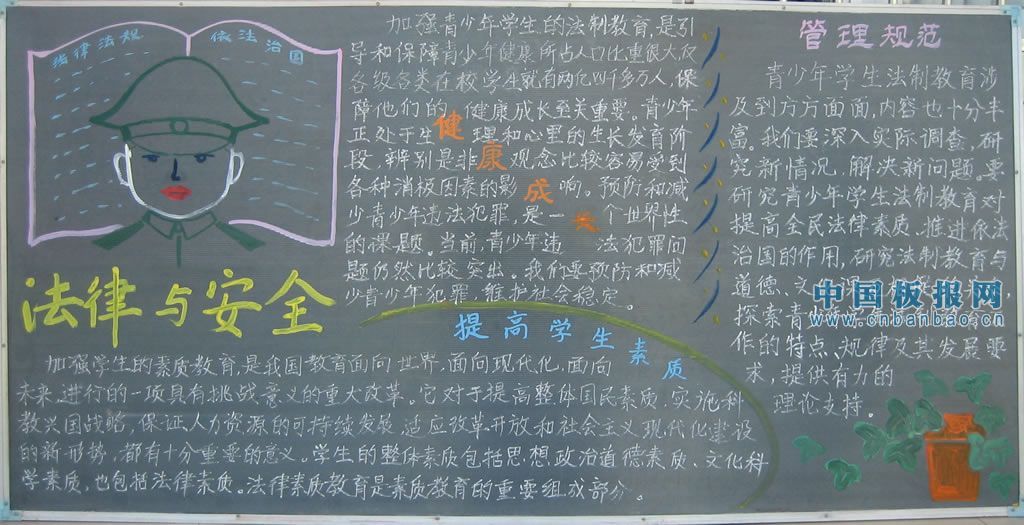 法律法规 依法治国
法律与安全
加强青少年学生的法制教育,是引
导和保障青少年健康所占人口比重很大,仅
各级各类在校学生就有两亿四千多万人,保
障他们的 健康成长至关重要。青少年
正处于生 理和心里的生长发育阶
段,辨别是非 观念比较容易受到
各种消极因素的影 响。预防和减
少青少年违法犯罪,是一 个世界性
的课题。当前,青少年违 法犯罪问
题仍然比较突出。我们要预防和减
少青少年犯罪,维护社会稳定。
健
康
成
长
提高学生素质
加强学生的素质教育,是我国教育面向世界,面向现代化,面向
未来,进行的一项具有挑战意义的重大改革。它对于提高整体国民素质,实施科
教兴国战略,保证人力资源的可持续发展,适应改革开放和社会主义现代化建设
的新形势,都有十分重要的意义。学生的整体素质包括思想政治道德素质、文化科
学素质,也包括法律素质。法律素质教育是素质教育的重要组成部分。
管理规范
青少年学生法制教育涉
及到方方面面,内容也十分丰
富。我们要深入实际调查,研
究新情况,解决新问题。要
研究青少年学生法制教育对
提高全民法律素质、推进依法
治国的作用,研究法制教育与
道德、文
探索青
作的特点、规律及其发展要
求,提供有力的
理论支持。
中国板报网
www.cnbanbao.cn